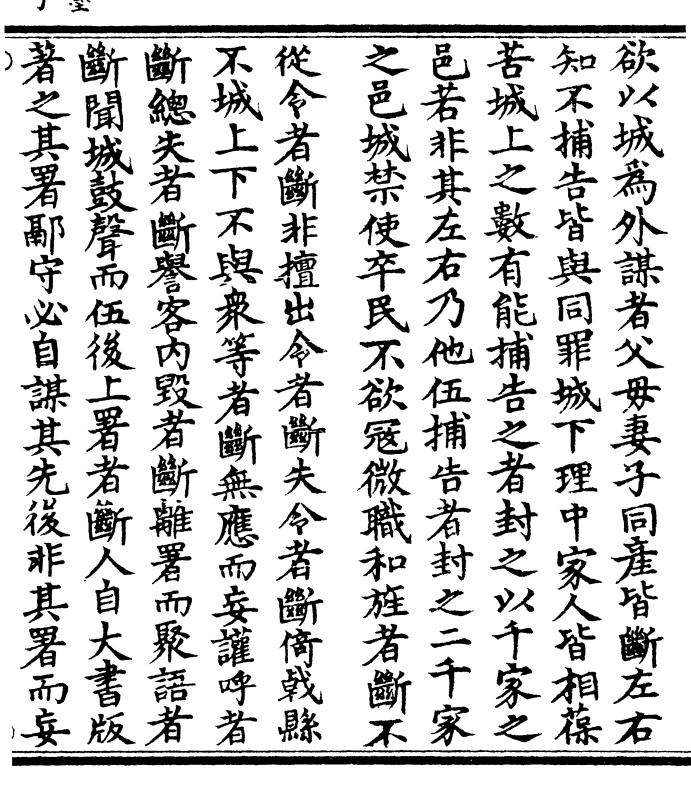 欲以城爲外謀者父毋妻子同產皆斷左右
知不捕告皆與同罪城下理中家人皆相葆
苦城上之數有能捕告之者封之以千家之
邑若非其左右乃他伍捕告者封之二千家
之邑城禁使卒民不欲冦微職和旌者斷不
從令者斷非擅出令者斷失令者斷倚戟縣
不城上下不與衆等者斷無應而妄讙呼者
斷總失者斷譽客內毀者斷離署而聚語者
斷聞城鼓聲而伍後上署者斷人自大書版
著之其署鄅守必自謀其先後非其署而妄